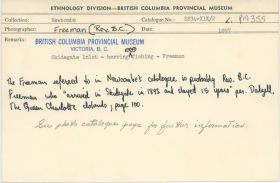 ETHNOLOGY DIVISION—BRITISH COLUMBIA PROVINCIAL MUSEUM
Collection: Newcombe Catalogue No.: PN 355
Photographer: Freeman (Rev. B.C.) Date: 1897
Remarks: BRITISH COLUMBIA PROVINCIAL MUSEUM
VICTORIA, B. C.
Skidegate Inlet - herring fishing - Freeman
The Freeman referred to in Newcombe's catalogue is probably Rev. B.C.
Freeman who "arrived in Skidegate in 1893 and stayed 15 years" per Dalzell,
The Queen Charlotte Islands, page 100.
See photo catalogue page for further information.